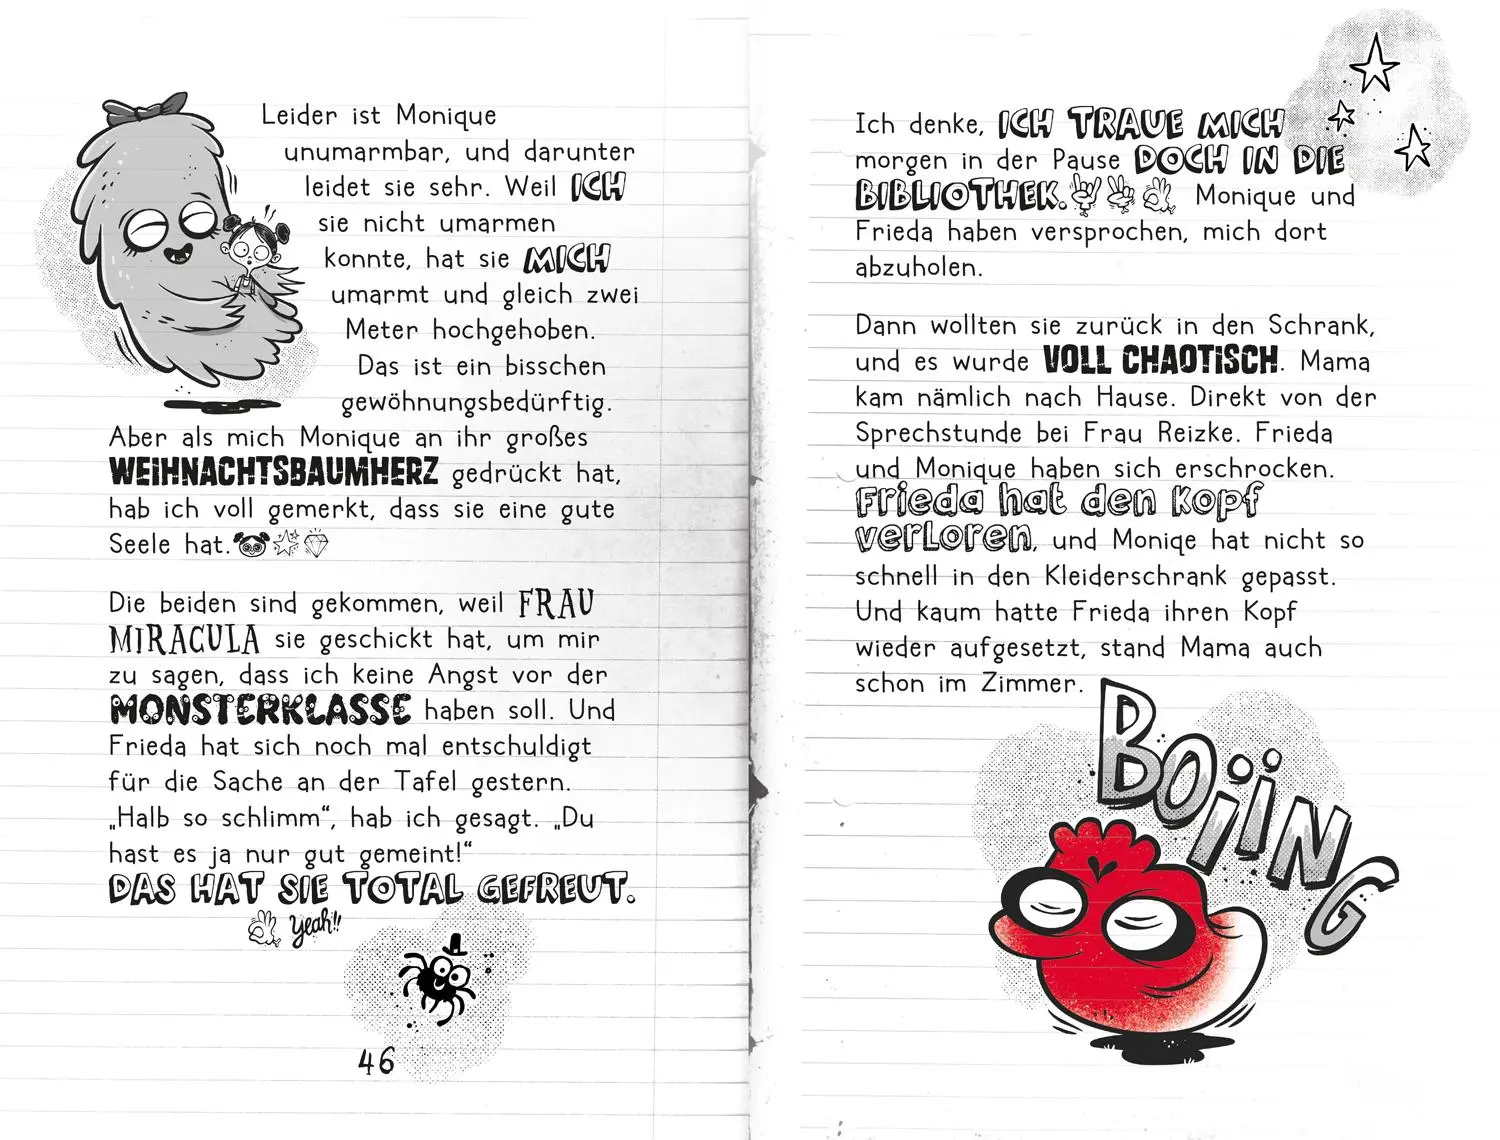 Leider ist Monique
unumarmbar, und darunter
leidet sie sehr. Weil ICH
sie nicht umarmen
konnte, hat sie MICH
umarmt und gleich zwei
Meter hochgehoben.
Das ist ein bisschen
gewöhnungsbedürftig.
Aber als mich Monique an ihr großes
WEiHNACHTSBAUMHERZ gedrückt hat,
hab ich voll gemerkt, dass sie eine gute
Seele hat.
Die beiden sind gekommen, weil FRAU
MIRACULA sie geschickt hat, um mir
zu sagen, dass ich keine Angst vor der
MONSTERKLASSE haben soll. Und
Frieda hat sich noch mal entschuldigt
für die Sache an der Tafel gestern.
„Halb so schlimm“, hab ich gesagt. „Du
hast es ja nur gut gemeint!“
DAS HAT SIE TOTAL GEFREUT.
Yeah!!
46
Ich denke, ICH TRAUE MICH
morgen in der Pause DOCH IN DIE
BIBLIOTHEK. Monique und
Frieda haben versprochen, mich dort
abzuholen.
Dann wollten sie zurück in den Schrank,
und es wurde VOLL CHAOTiSCH. Mama
kam nämlich nach Hause. Direkt von der
Sprechstunde bei Frau Reizke. Frieda
und Monique haben sich erschrocken.
Frieda hat den Kopf
verloren, und Moniqe hat nicht so
schnell in den Kleiderschrank gepasst.
Und kaum hatte Frieda ihren Kopf
wieder aufgesetzt, stand Mama auch
schon im Zimmer.
BOiiNG